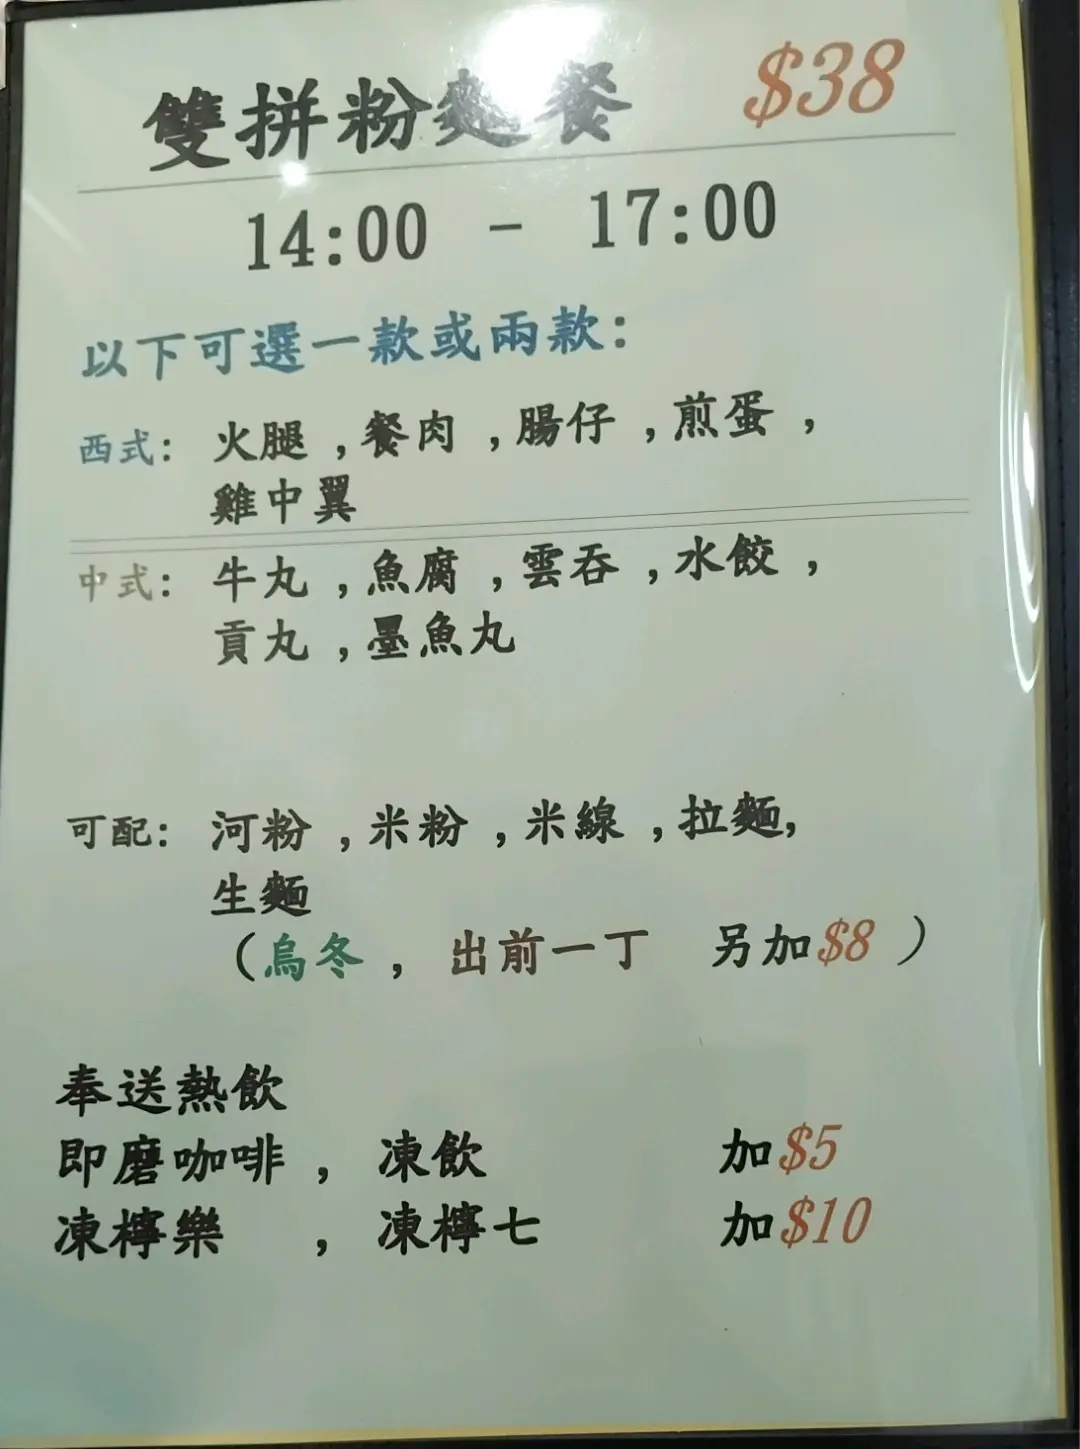 雙拼粉麵餐 $38
14:00 - 17:00
以下可選一款或兩款:
西式: 火腿 ,餐肉 ,腸仔 ,煎蛋 ,
雞中翼
中式: 牛丸 ,魚腐 ,雲吞 ,水餃 ,
貢丸 ,墨魚丸
可配: 河粉 ,米粉 ,米線 ,拉麵,
生麵
(烏冬 , 出前一丁 另加$8 )
奉送熱飲
即磨咖啡 , 凍飲 加$5
凍檸樂 , 凍檸七 加$10